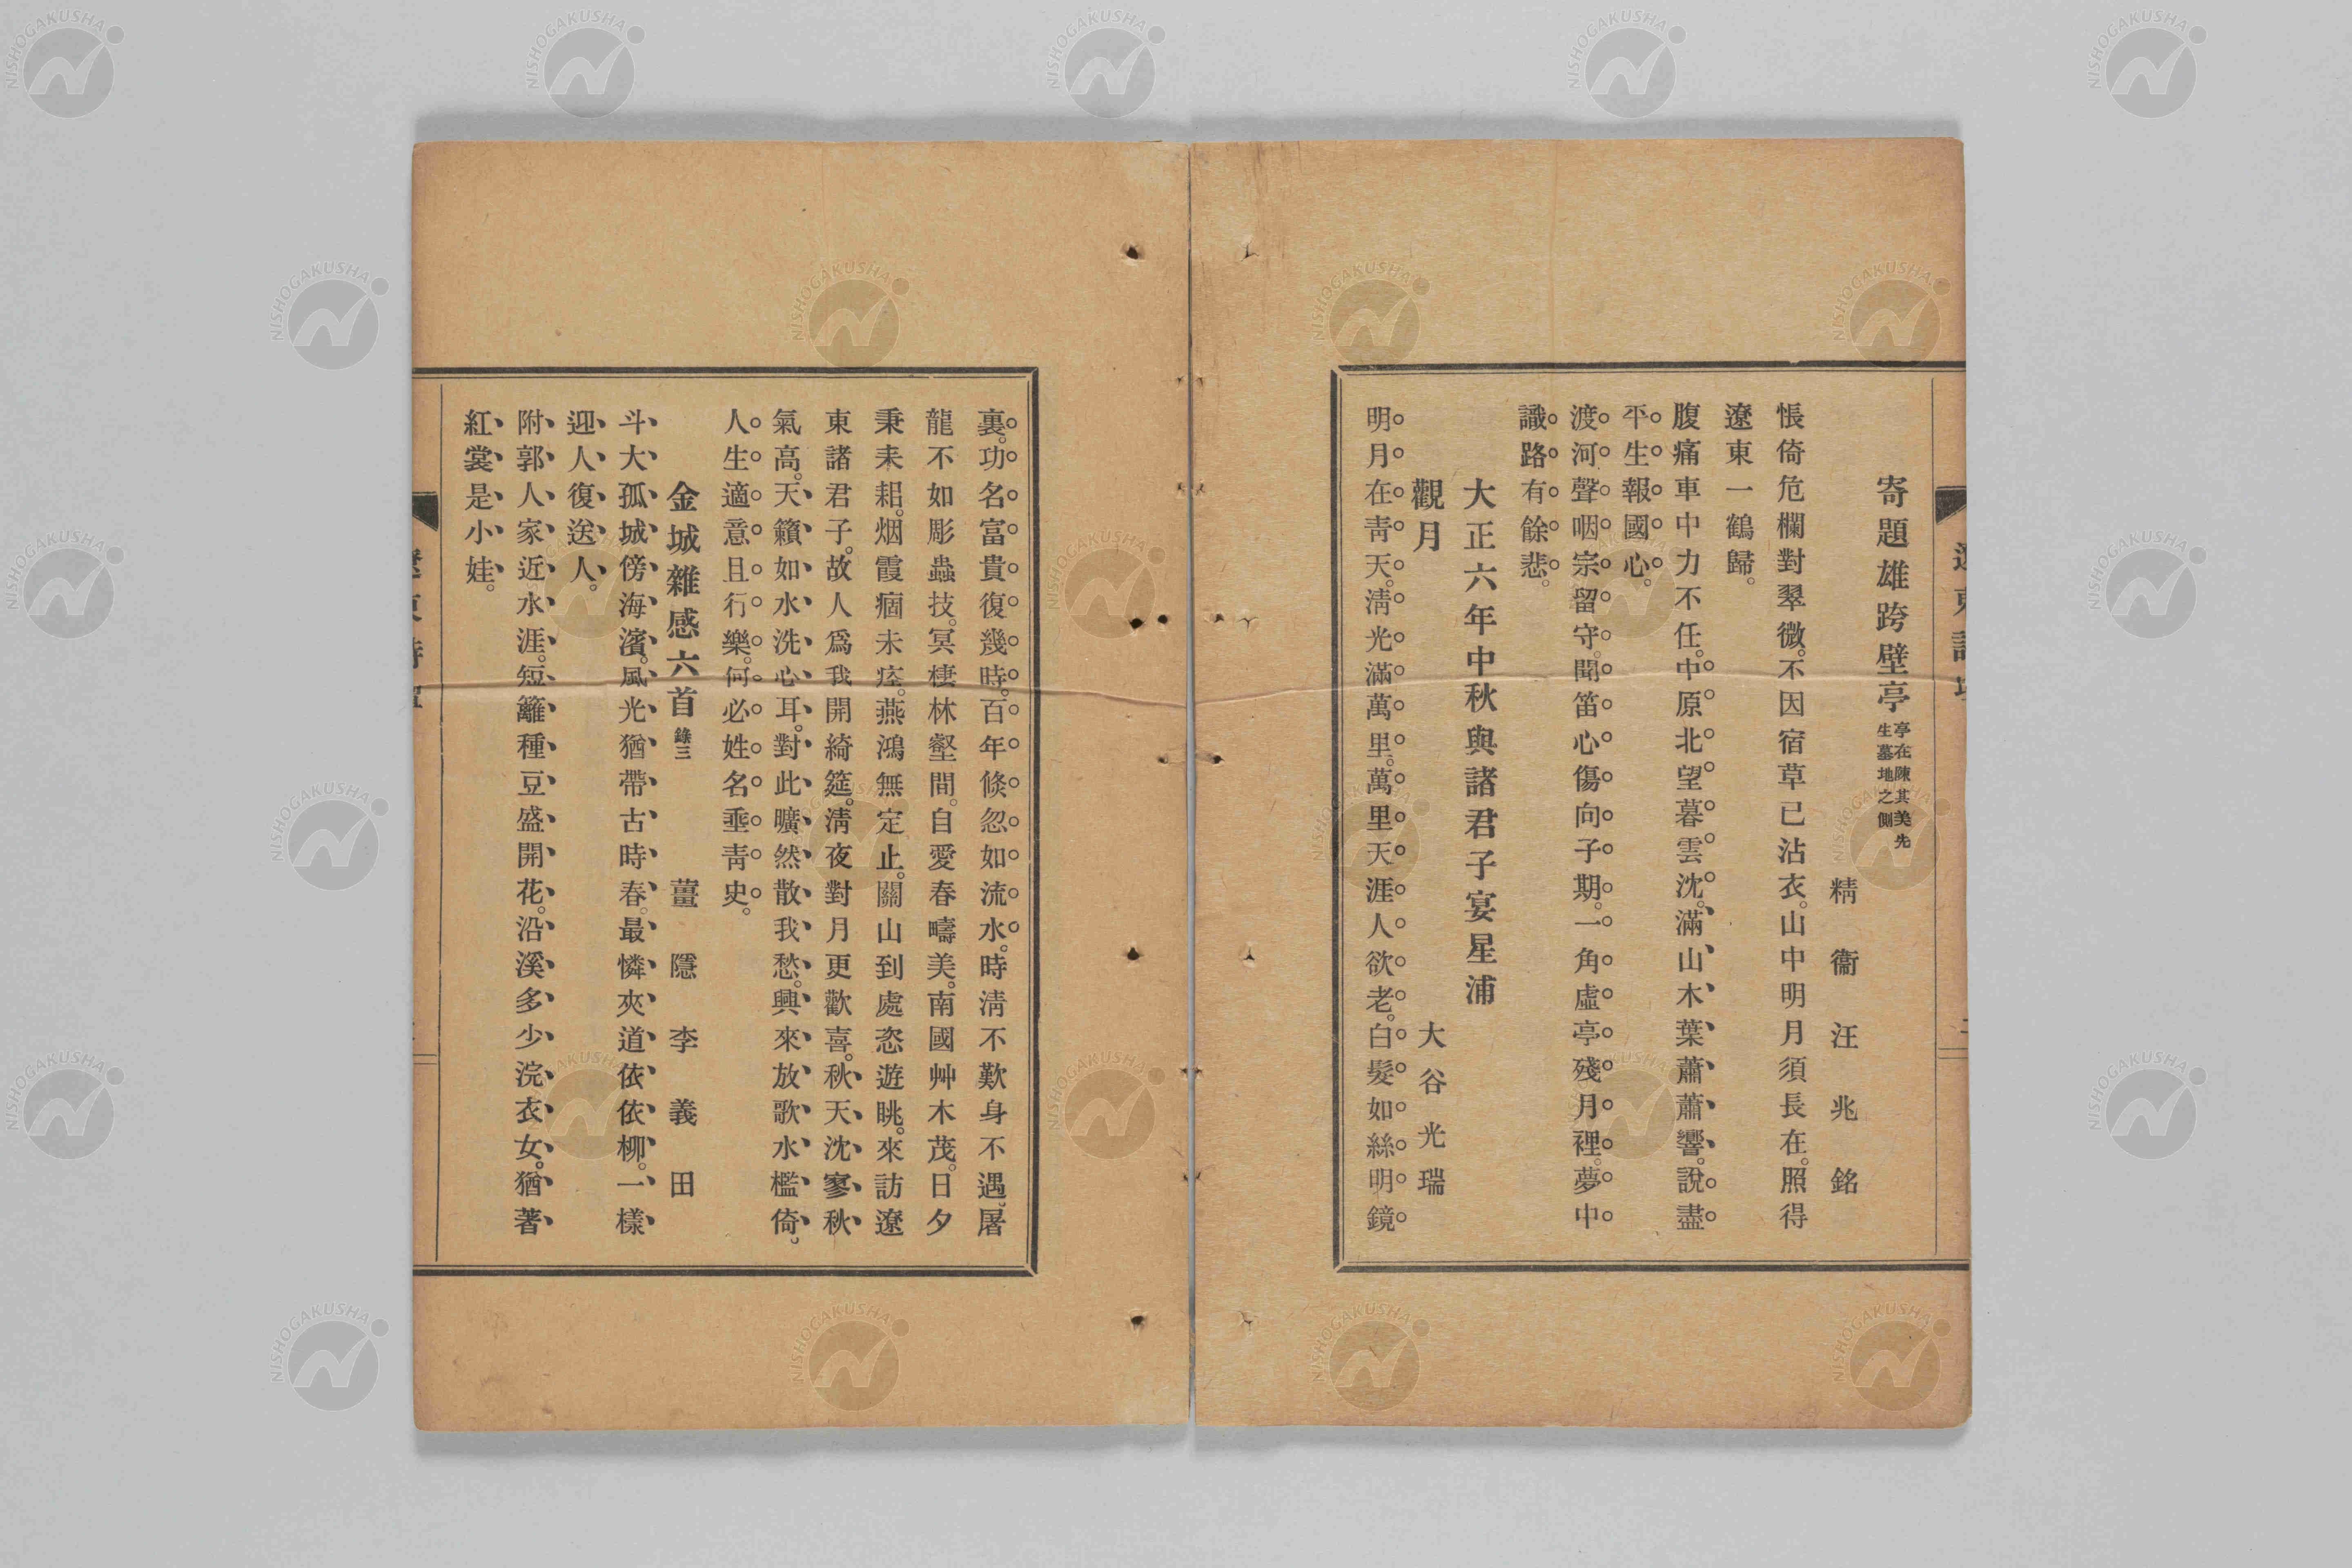 寄題雄跨壁亭 亭在陳其美先
生墓地之側
精衞 汪兆銘
悵倚危欄對翠微。不因宿草已沾衣。山中明月須長在。照得
遼東一鶴歸。
腹痛車中力不任。中原北望暮雲沈。滿山木葉蕭蕭響。說盡
平生報國心。
渡河聲咽宗留守。聞笛心傷向子期。一角虛亭殘月裡。夢中
識路有餘悲。
大正六年中秋與諸君子宴星浦
觀月 大谷光瑞
明月在靑天。淸光滿萬里。萬里天涯人欲老。白髮如絲明鏡
裏。功名富貴復幾時。百年倏忽如流水。時淸不歎身不遇。屠
龍不如彫蟲技。冥棲林壑間。自愛春疇美。南國艸木茂。日夕
秉耒耜。烟霞痼未痊。燕鴻無定止。關山到處恣遊眺。來訪遼
東諸君子。故人爲我開綺筵。淸夜對月更歡喜。秋天沈寥秋
氣高。天籟如水洗心耳。對此曠然散我愁。興來放歌水檻倚。
人生適意且行樂。何必姓名垂靑史。
金城雜感六首 錄三 薑隱 李義田
斗大孤城傍海濱。風光猶帶古時春。最憐夾道依依柳。一樣
迎人復送人。
附郭人家近水涯。短籬種豆盛開花。沿溪多少浣衣女。猶著
紅裳是小娃。
NISHOGAKUSHA